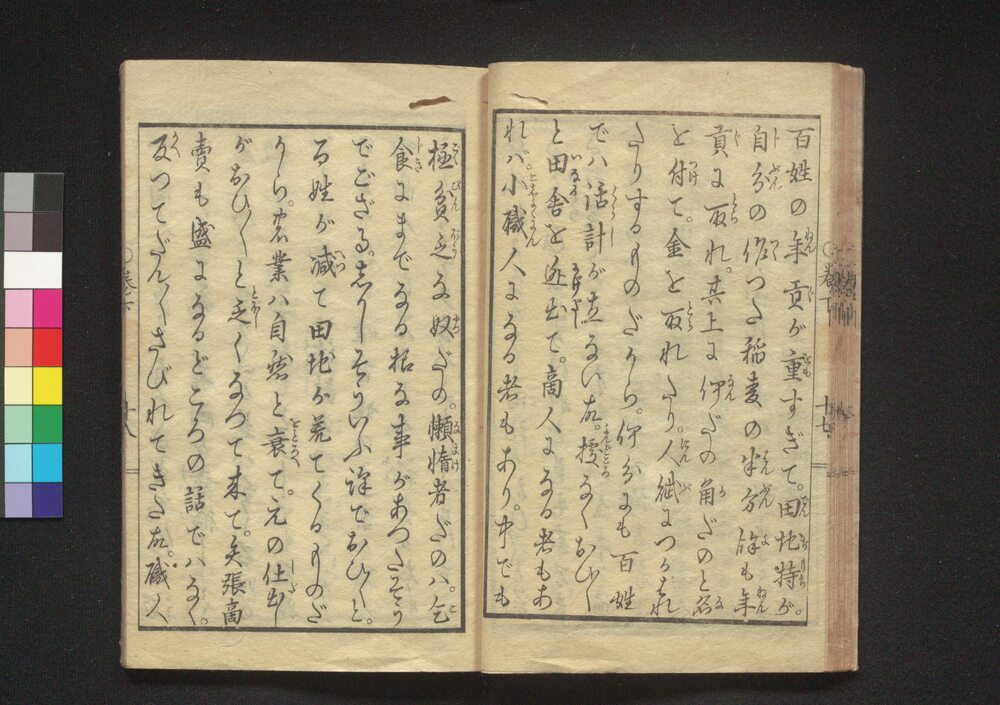 百姓の年貢が重すぎて。田地持が。
自分の作つた稲麦の半分餘も年
貢に取れ。其上に何だの角だのと名
を付て。金を取れたり。人足につかはれ
たりするものだから。何分にも百姓
では活計が立ない故。據なくおひ〳〵
と田舎を逃出て。商人になる者もあ
れば。小職人になる者もあり。中でも
極貧乏な奴だの。懶惰者だのハ。乞
食にまでなる抔な事があつたさう
でござる。さりしさういふ譯でおひ〳〵と。
百姓が減て田地が荒てくるものだ
から。農業ハ自然と衰て。元の仕出し
がおひ〳〵と乏くなつて来て。矢張商
賣も盛になるどころの話でハなく。
反つてだん〳〵さびれてきた故。職人
巻下
十七
十八